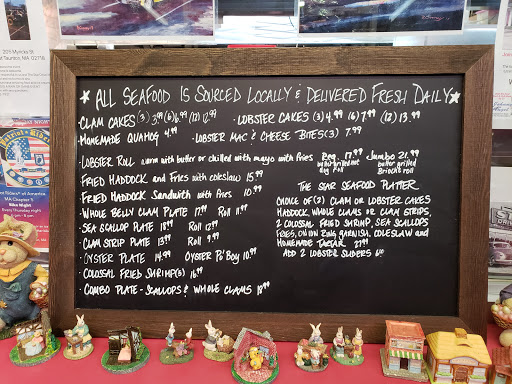 ★ ALL SEAFOOD IS SOURCED LOCALLY & DELIVERED FRESH DAILY ★
CLAM CAKES (3) 3.99 (6) 6.99 (12) 12.99
LOBSTER CAKES (3) 4.99 (6) 7.99 (12) 13.99
HOMEMADE QUAHOG 4.99
LOBSTER MAC & CHEESE BITES (3) 7.99
LOBSTER ROLL warm with butter or chilled with mayo with fries Reg. 17.99 Jumbo 21.99
butter grilled hot dog roll
butter grilled Brioche roll
FRIED HADDOCK and fries with coleslaw 15.99
FRIED HADDOCK Sandwich with fries 10.99
WHOLE BELLY CLAM PLATE 17.99 ROLL 11.99
SEA SCALLOP PLATE 18.99 ROLL 12.99
CLAM STRIP PLATE 13.99 ROLL 9.99
OYSTER PLATE 14.99 OYSTER PO' BOY 10.99
COLOSSAL FRIED SHRIMP(5) 16.99
COMBO PLATE - SCALLOPS & WHOLE CLAMS 18.99
THE STAR SEAFOOD PLATTER
CHOICE OF (2) CLAM OR LOBSTER CAKES
HADDOCK, WHOLE CLAMS OR CLAM STRIPS,
2 COLOSSAL FRIED SHRIMP, SEA SCALLOPS
FRIES, ONION RING GARNISH, COLESLAW AND
HOMEMADE TARTAR 27.99
ADD 2 LOBSTER SLIDERS